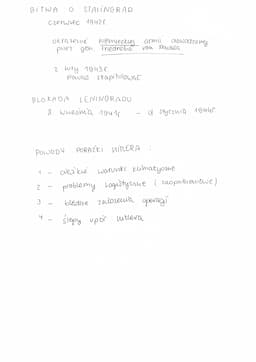 BITWA O STALINGRAD
CZERWIEC 1942r
okrążenie niemieckiej armii dowodzonej
przez gen. Friedricha von Paulusa
2 luty 1943r
Paulus skapitulował
BLOKADA LENINGRADU
8 września 1941r - stycznia 1944r
POWODY PORAŻKI HITLERA :
1 - ciężkie warunki klimatyczne
2 - problemy logistyczne ( zaopatrzeniowe)
3 - błędne założenia operacji
4 - ślepy upór Hitlera